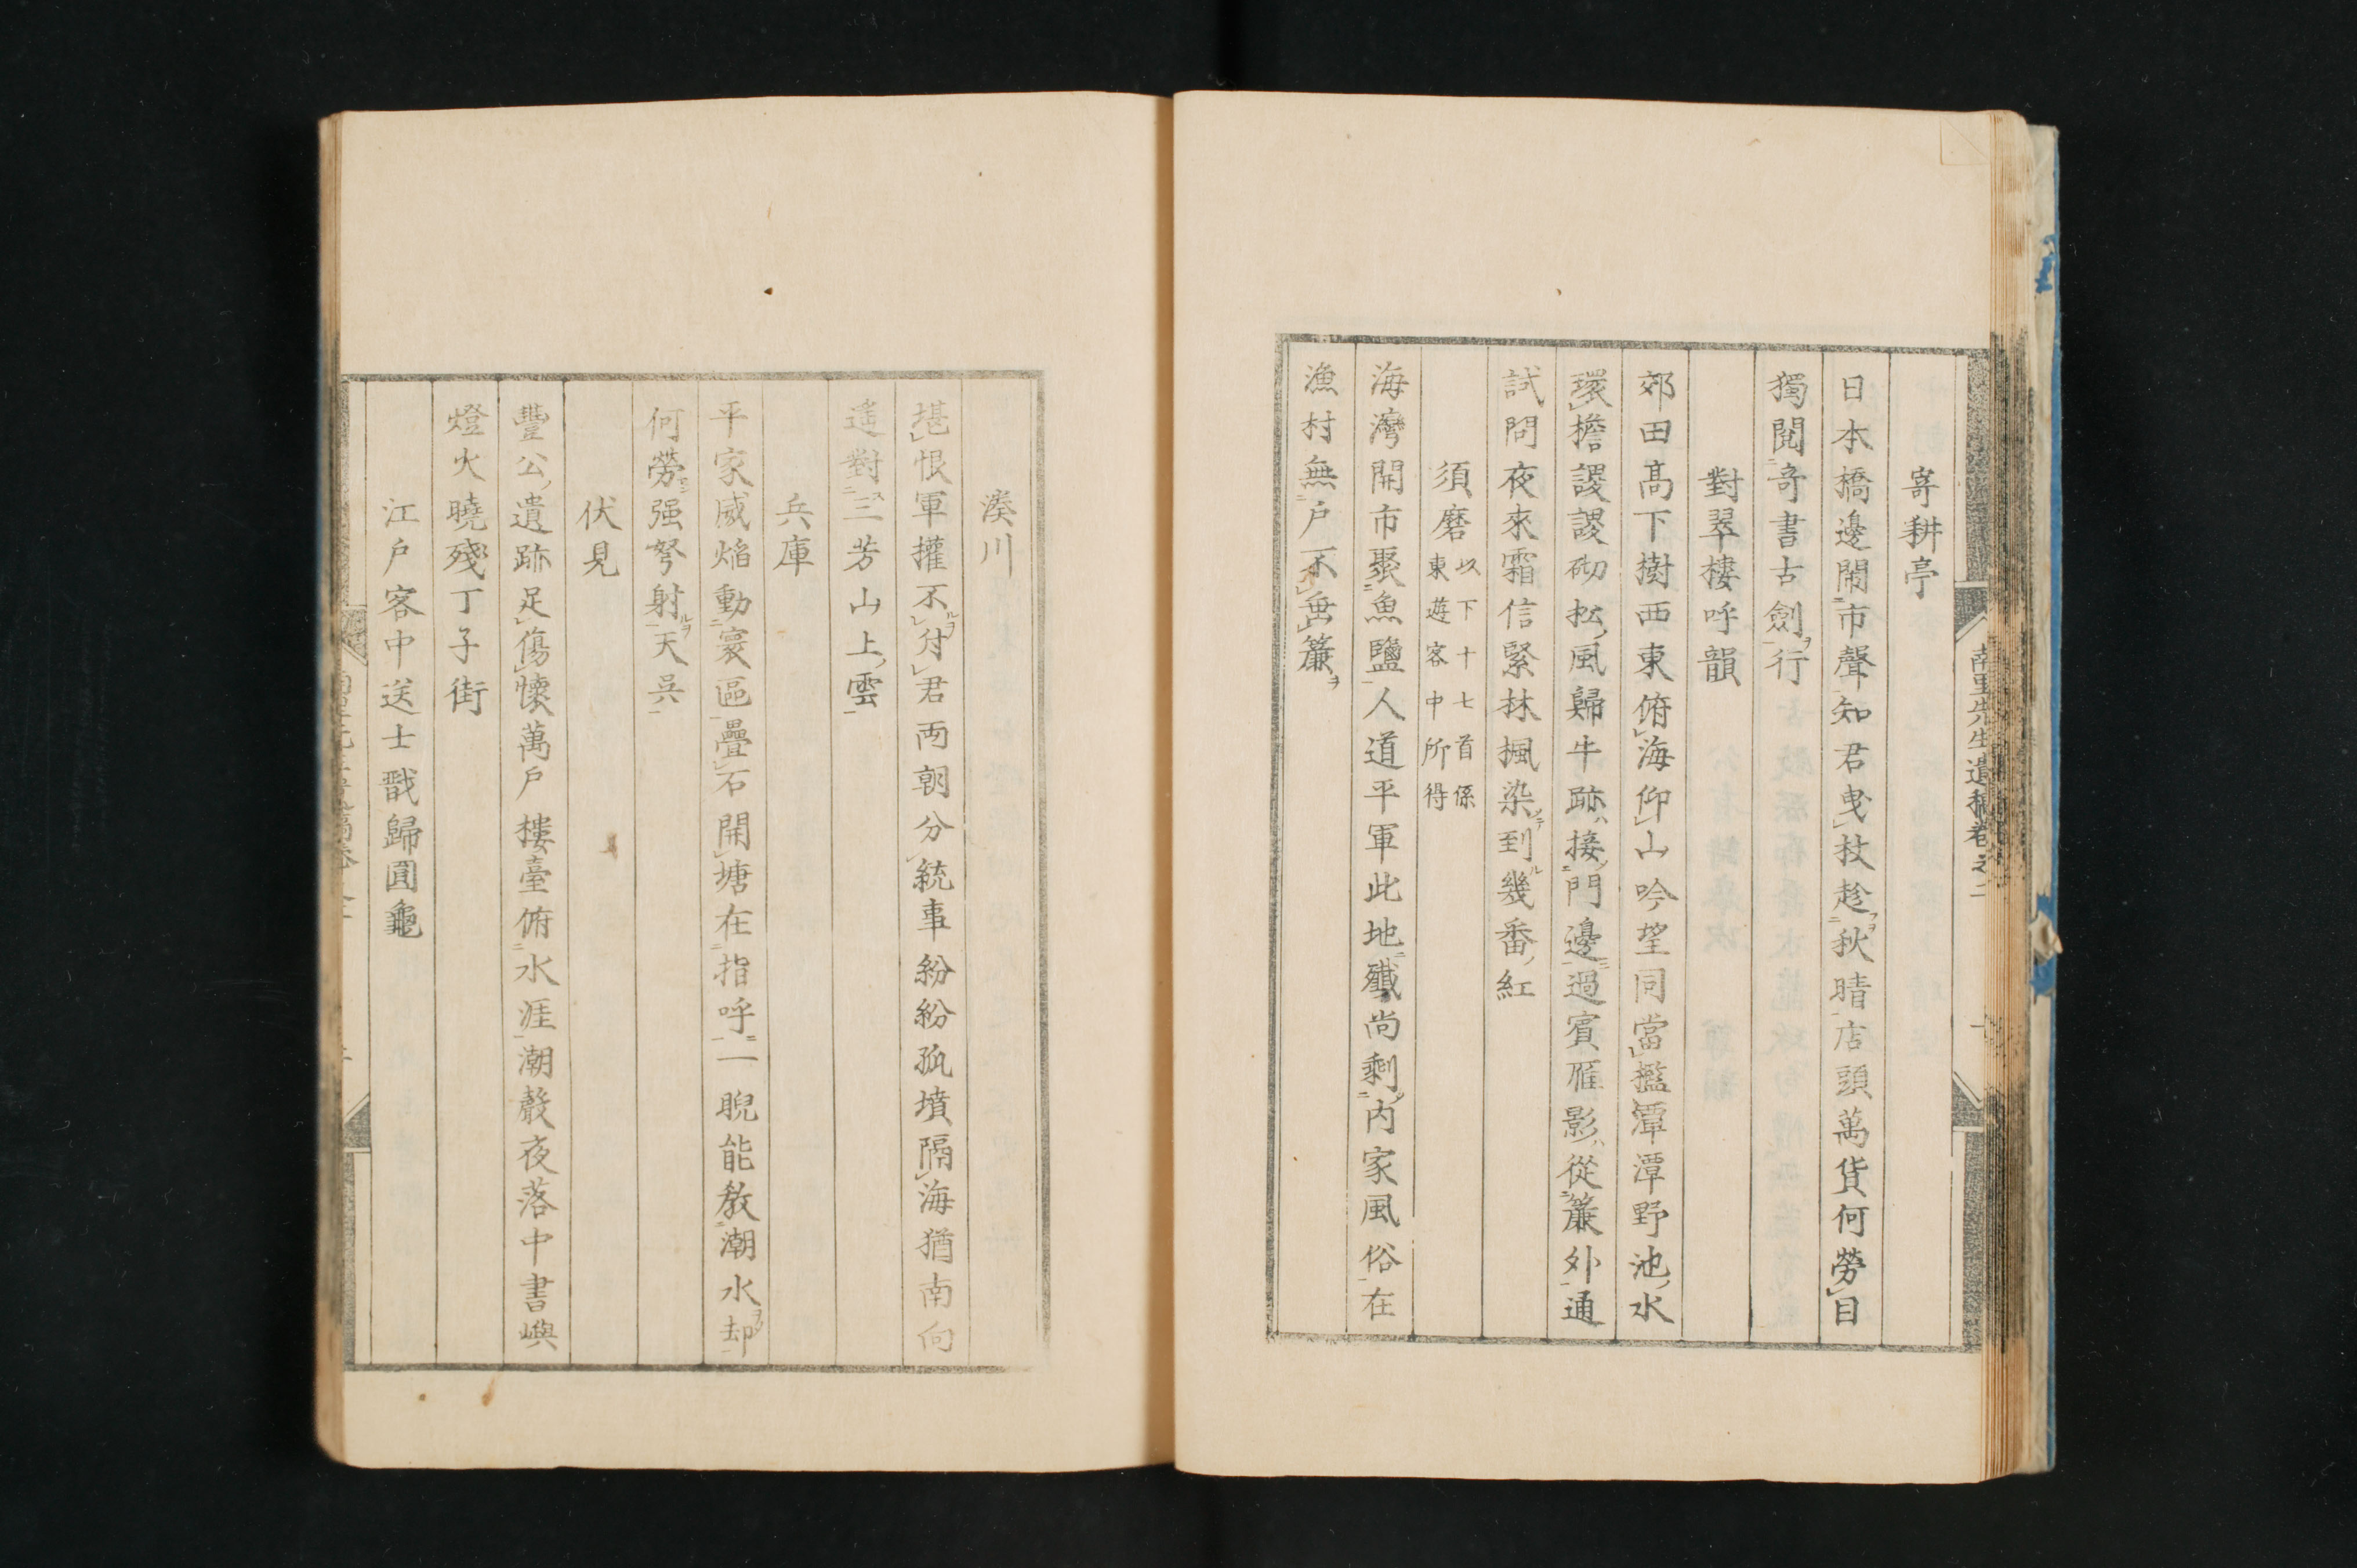 寄耕亭
日本橋邊閙市聲知君曳杖趁秋晴店頭萬貨何勞目
獨閲奇書古劍行
對翠樓呼韻
郊田高下樹西東俯海仰山吟望同當檻潭潭野池水
環檐謖謖砌松風歸牛跡接門邊過賓雁影從簾外通
試問夜來霜信緊林楓染到幾番紅
須磨
以下十七首係
東遊客中所得
海灣開市聚魚鹽人道平軍此地殲尚剩内家風俗在
漁村無戸不垂簾
南里先生遺稿卷之二
湊川
堪恨軍權不付君兩朝分統事紛紛孤墳隔海猶南向
遙對三芳山上雲
兵庫
平家威焰動寰區疊石開塘在指呼一睨能教潮水却
何勞强弩射天吳
伏見
豐公遺跡足傷懷萬戸樓臺俯水涯潮聲夜落中書嶼
燈火曉殘丁子街
江戸客中送士戩歸圓龜